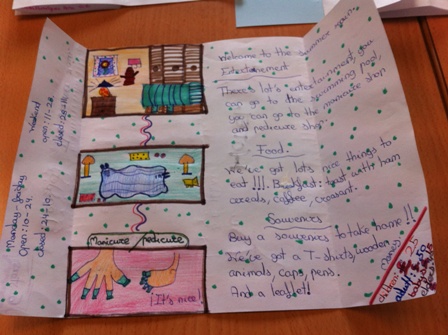 Weekend
open: 11-28.
closed: 28-11.
Monday-friday
Open: 10-24.
closed: 24-10.
Manicure Pedicure
It's nice!
Welcome to the summer
Entertainement
There's lot's entertainment, you
can go to the swimming pool,
you can go to the manicure shop
and pedicure shop.
Food
We've got lots nice things to
eat !!! Breakfast: toast with ham
cereals, coffee, croasant.
Souvenirs
Buy a souvenirs to take home!!
We've got a T-shirts, wooden
animals, caps, pens.
And a leaflet!
Money